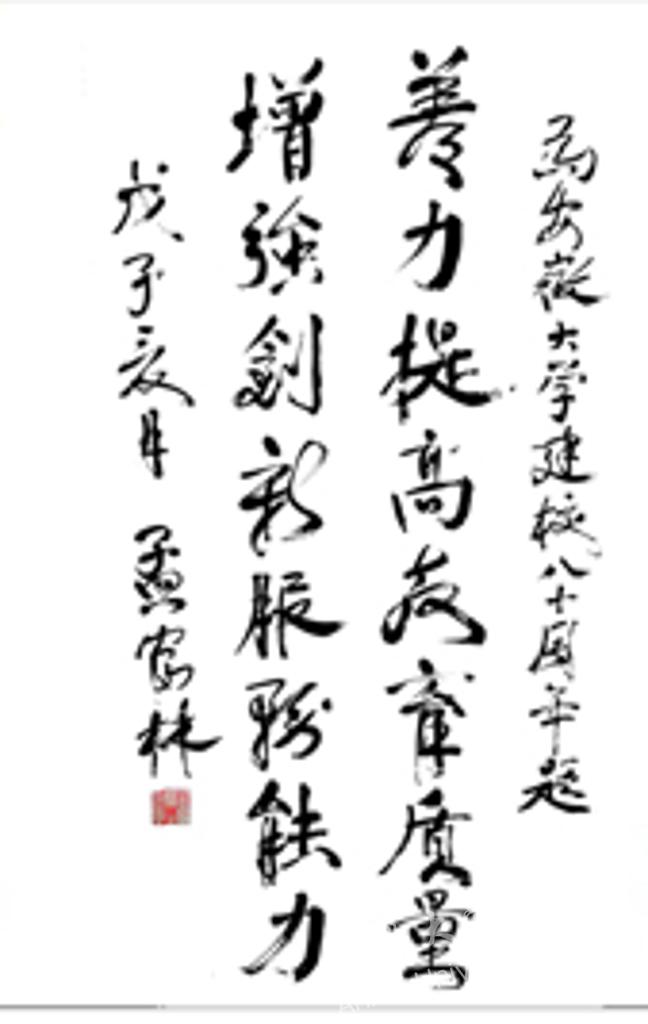 为安徽大学建校八十周年题
着力提高教育质量
增强创新服务能力
戊子夏月 孟富林